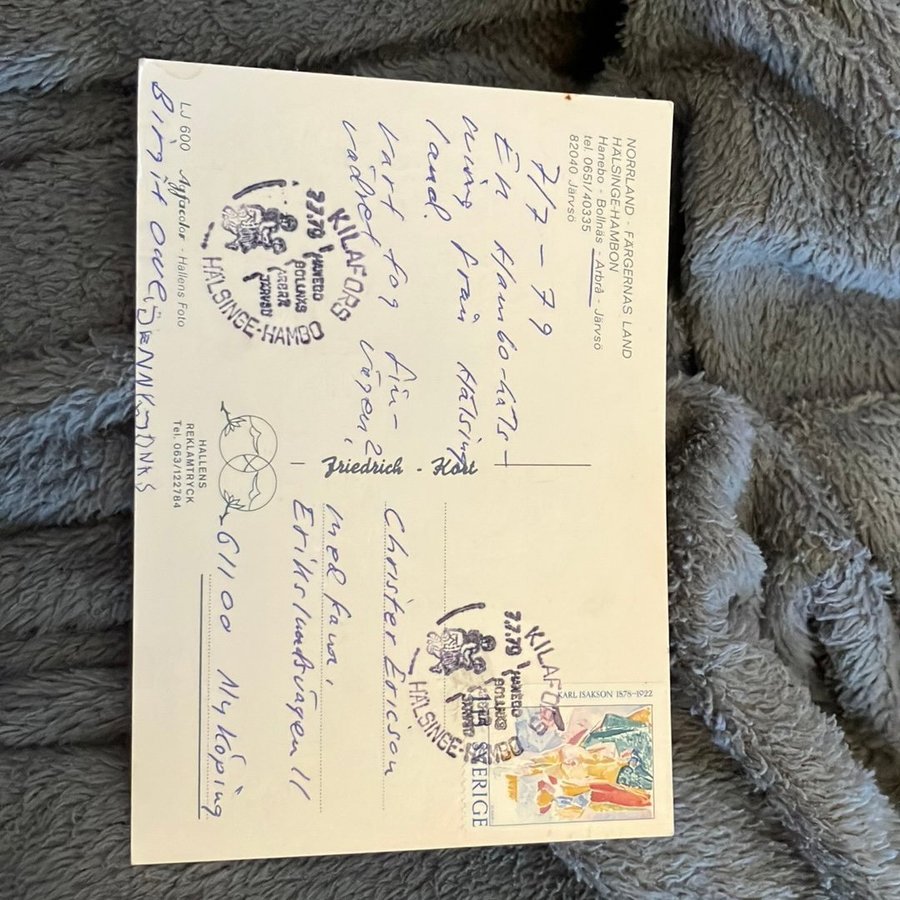 NORRLAND - FÄRGERNAS LAND
HÄLSINGE-HAMBON
Hanebo - Bollnäs - Arbrå - Järvsö
tel. 0651/40335
82040 Järvsö
7/7 - 79
En Hambo-häls-
ning från Hälsinge
land.
Vart tog fin-
vädret vägen?
LJ 600 Agfacolor - Hallens Foto
Birgit Ove,
KILAFORS
7.7.79
HANEBO
BOLLNÄS
ARBRÅ
JÄRVSÖ
HÄLSINGE-HAMBO
Friedrich - Kort
HALLENS
REKLAMTRYCK
Tel. 063/122784
KARL ISAKSON 1878-1922
SVERIGE
KILAFORS
7.7.79
HANEBO
BOLLNÄS
ARBRÅ
JÄRVSÖ
HÄLSINGE-HAMBO
Christer Ericson
med fam.
Erikslundsvägen 11
61100 Nyköping